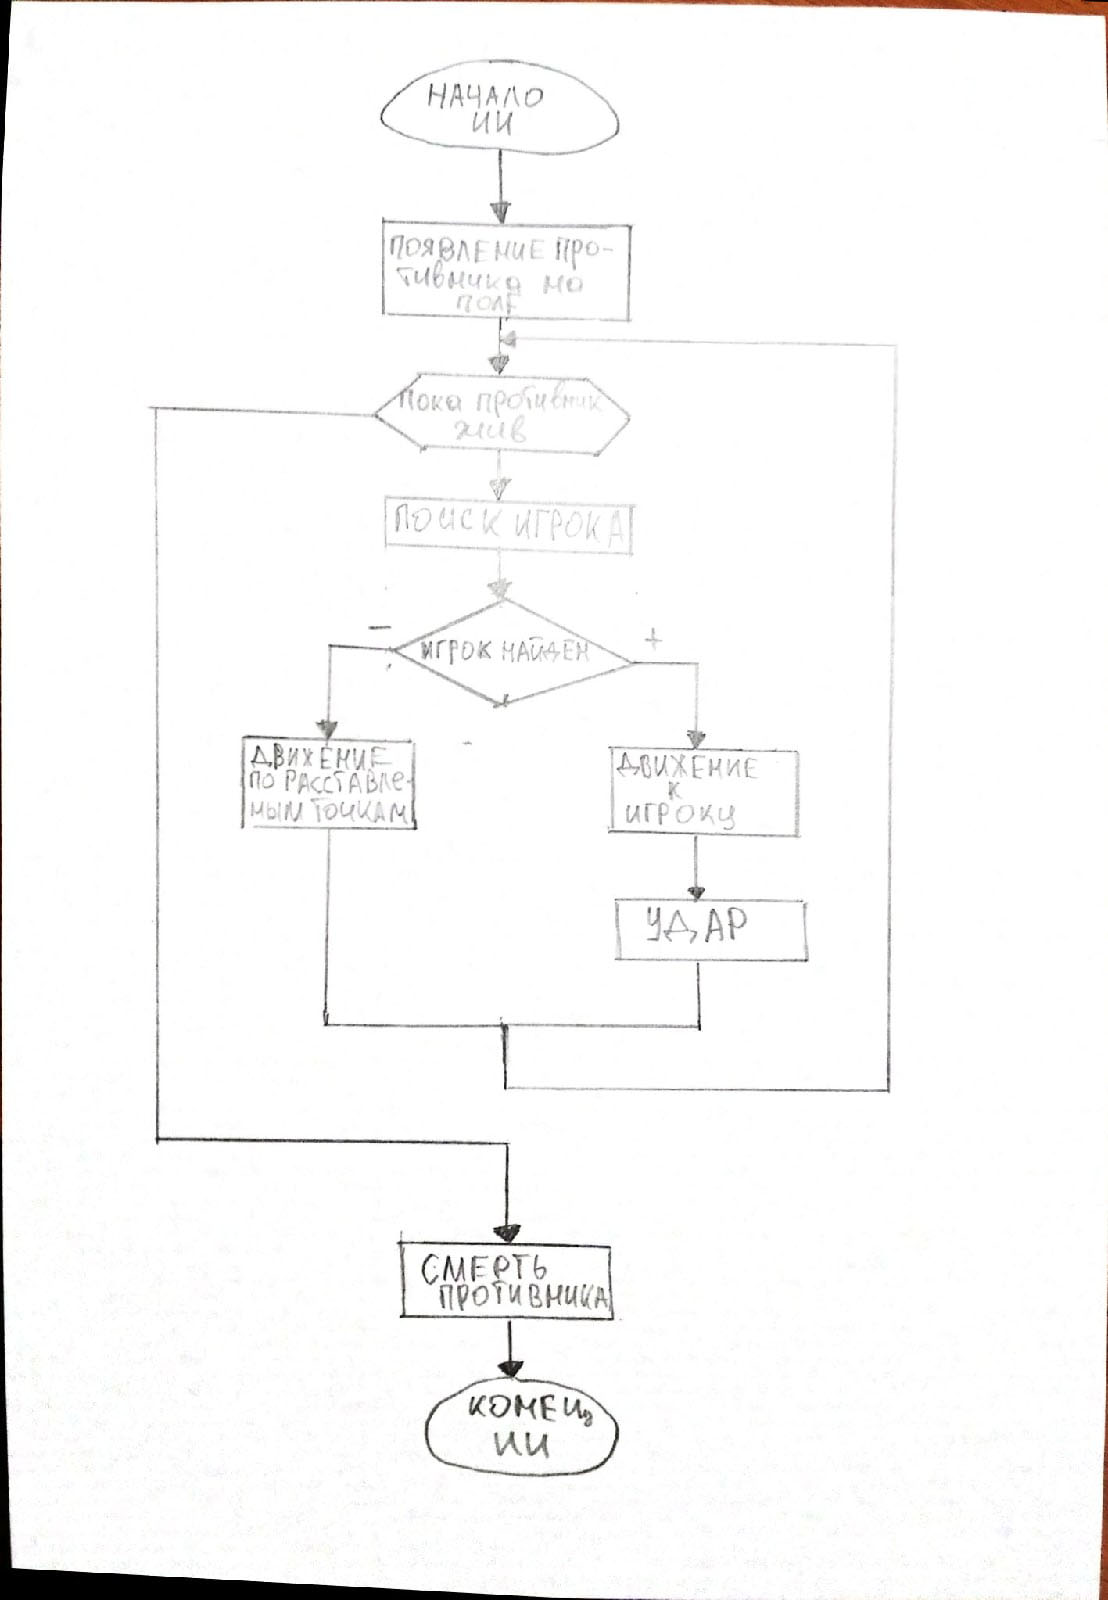 НАЧАЛО
ИИ
ПОЯВЛЕНИЕ ПРО-
ТИВНИКА НА
ПОЛЕ
Пока противник
жив
ПОИСК ИГРОКА
ИГРОК НАЙДЕН
-
+
ДВИЖЕНИЕ
ПО РАССТАВЛЕ-
НЫМ ТОЧКАМ
ДВИЖЕНИЕ
К
ИГРОКУ
УДАР
СМЕРТЬ
ПРОТИВНИКА
КОНЕЦ
ИИ